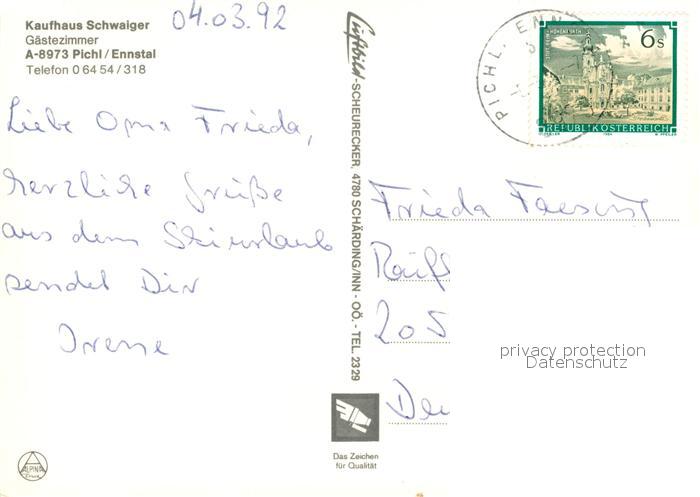 Kaufhaus Schwaiger
Gästezimmer
A-8973 Pichl / Ennstal
Telefon 0 64 54 / 318
04.03.92
Liebe Oma Frieda,
herzliche Grüße
aus dem Skiurlaub
sendet Dir
Irene
Luftbild-SCHEURECKER, 4780 SCHÄRDING/INN - OÖ. - TEL. 2329
Das Zeichen
für Qualität
ALPINA
PICHL, ENN
6s
REPUBLIK ÖSTERREICH
1984
Frieda
205
privacy protection
Datenschutz